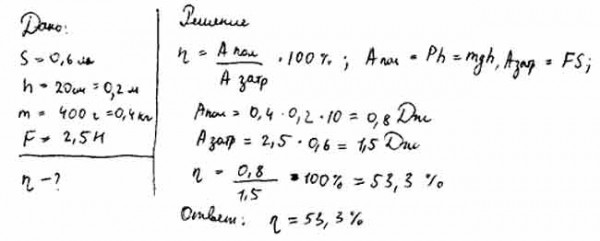 Дано:
S = 0,6 м
h = 20см = 0,2 м
m = 400 г = 0,4 кг
F = 2,5 Н
η – ?
Решение
η = A пол / A затр · 100 % ; A пол = Ph = mgh, A затр = FS;
A пол = 0,4 · 0,2 · 10 = 0,8 Дж
A затр = 2,5 · 0,6 = 1,5 Дж
η = 0,8 / 1,5 · 100 % = 53,3 %
Ответ: η = 53,3 %